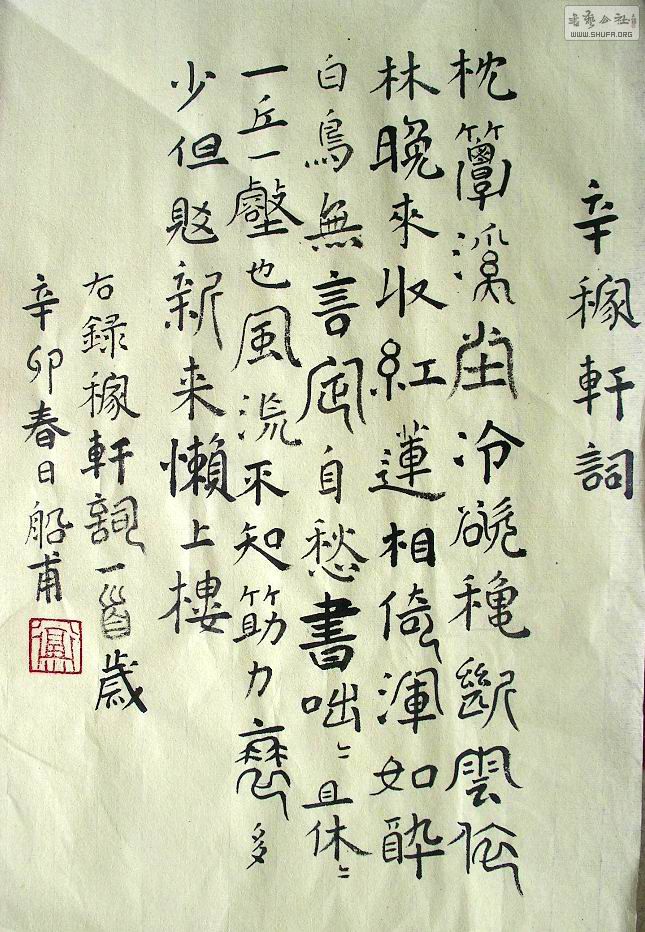 書藝公社
WWW.SHUFA.ORG
辛稼軒詞
枕簟溪堂冷欲穐斷雲依
林晚來收紅蓮相倚渾如醉
白鳥無言定自愁書咄〻且休〻
一丘一壑也風流不知筋力衰多
少但覺新来懶上樓
右録稼軒詞一首歲
辛卯春日船甫